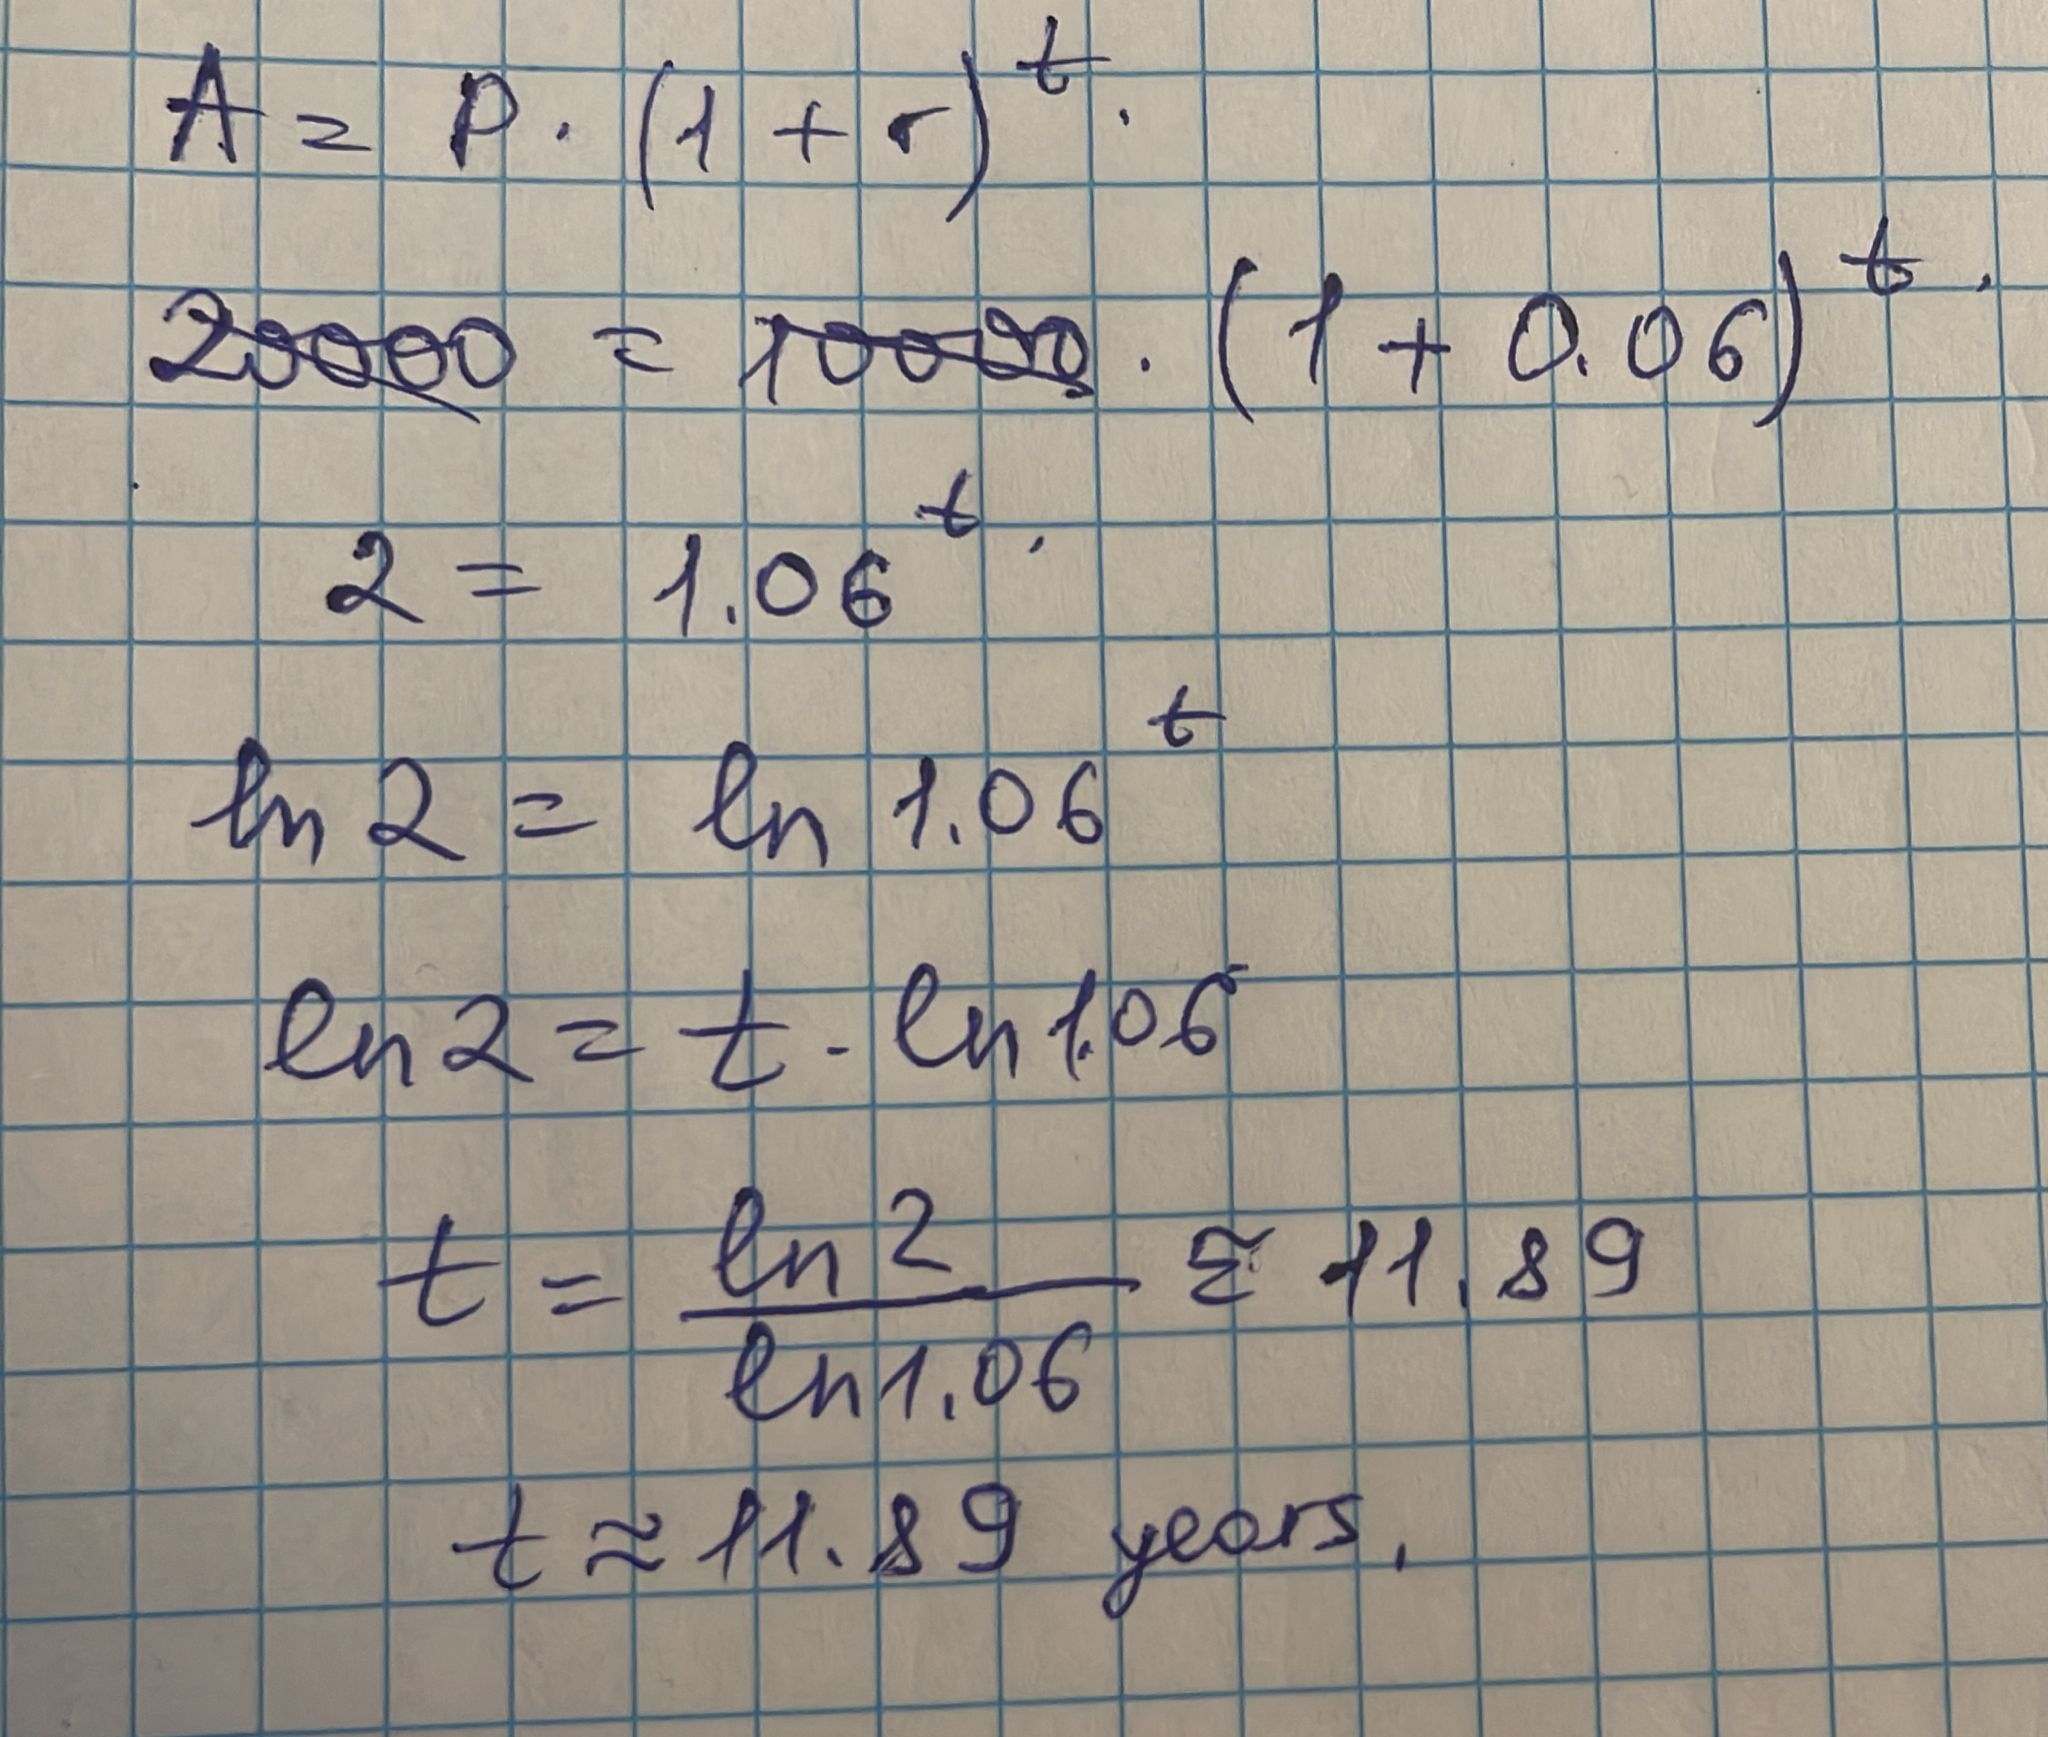 A = P · (1 + r)^t .
20000 = 10000 · (1 + 0.06)^t .
2 = 1.06^t .
ln 2 = ln 1.06^t
ln 2 = t · ln 1.06
t = ln 2 / ln 1.06 ≈ 11.89
t ≈ 11.89 years.